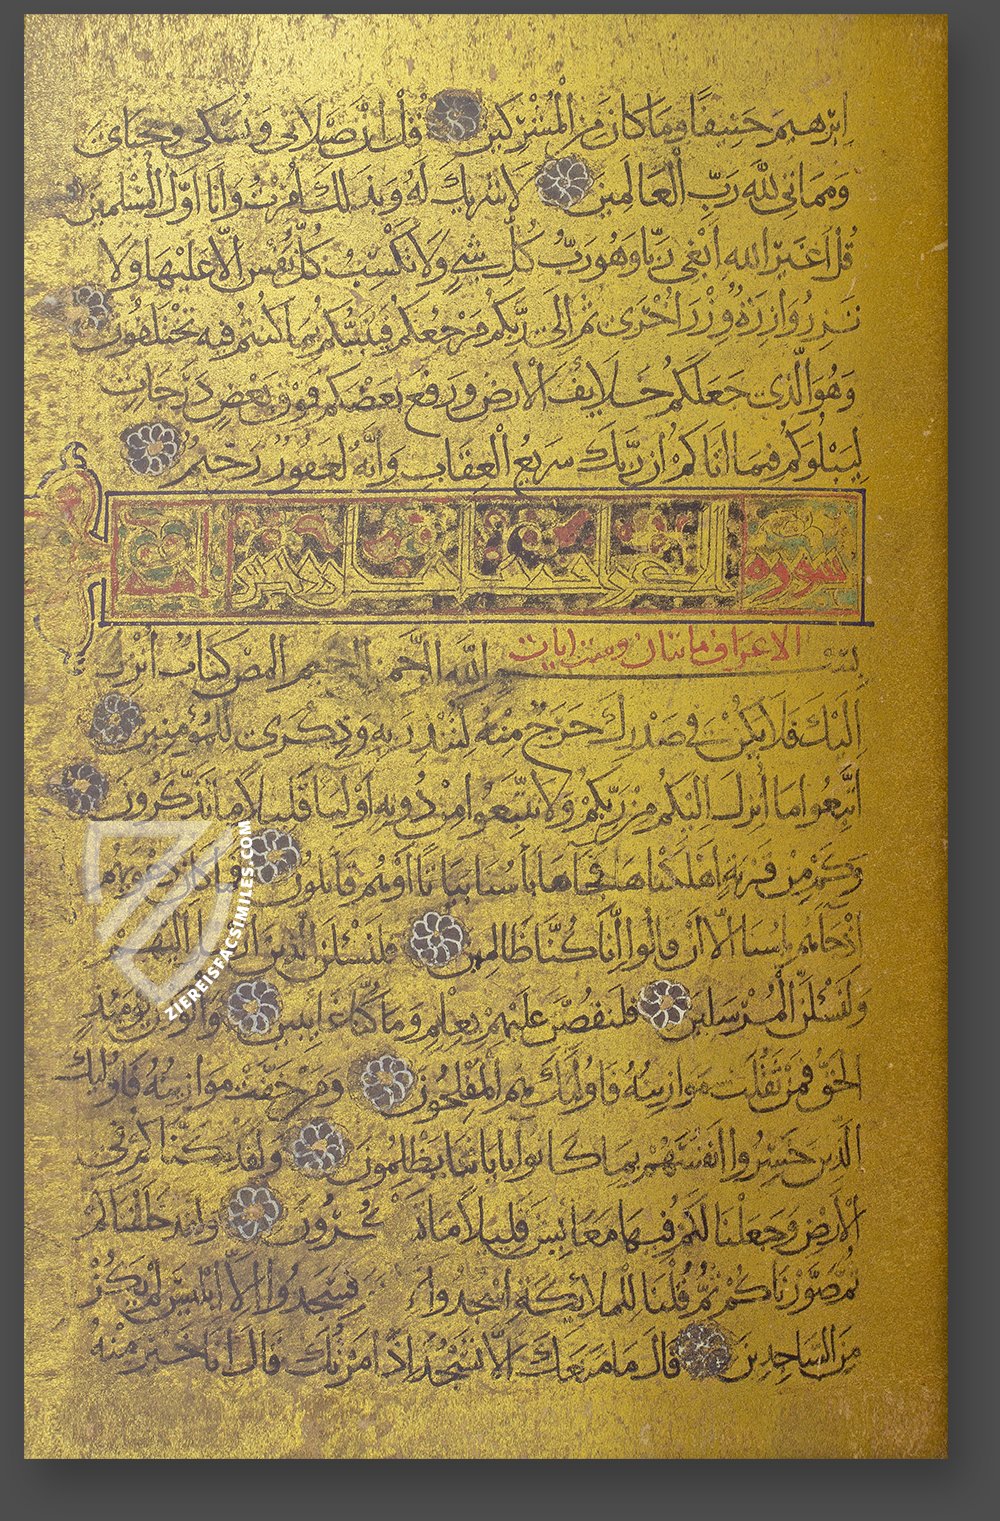 ابرهيم حنيفا وما كان من المشركين قل ان صلاتي ونسكي ومحياي
ومماتي لله رب العالمين لا شريك له وبذلك امرت وانا اول المسلمين
قل اغير الله ابغي ربا وهو رب كل شي ولا تكسب كل نفس الا عليها ولا
تزر وازرة وزر اخرى ثم الى ربكم مرجعكم فينبيكم بما كنتم فيه تختلفون
وهو الذي جعلكم خلايف الارض ورفع بعضكم فوق بعض درجات
ليبلوكم فيما اتاكم ان ربك سريع العقاب وانه لغفور رحيم
سورة
الاعراف ماتتان وست ايات
بسم الله الرحمن الرحيم المص كتاب انزل
اليك فلا يكن في صدرك حرج منه لتنذر به وذكرى للمؤمنين
اتبعوا ما انزل اليكم من ربكم ولا تتبعوا من دونه اوليا قليلا ما تذكرون
وكم من قرية اهلكناها فجاها باسنا بياتا او هم قائلون فما كان دعويهم
اذ جاهم باسنا الا ان قالوا انا كنا ظالمين فلنسئلن الذين ارسل اليهم
ولنسئلن المرسلين فلنقصن عليهم بعلم وما كنا غايبين والوزن يوميذ
الحق فمن ثقلت موازينه فاوليك هم المفلحون ومن خفت موازينه فاوليك
الذين خسروا انفسهم بما كانوا باياتنا يظلمون ولقد مكناكم في
الارض وجعلنا لكم فيها معايش قليلا ما تشكرون ولقد خلقناكم
ثم صورناكم ثم قلنا للملايكة اسجدوا فسجدوا الا ابليس لم يكن
من الساجدين قال ما منعك الا تسجد اذ امرتك قال انا خير منه
ZIEREISFACSIMILES.COM